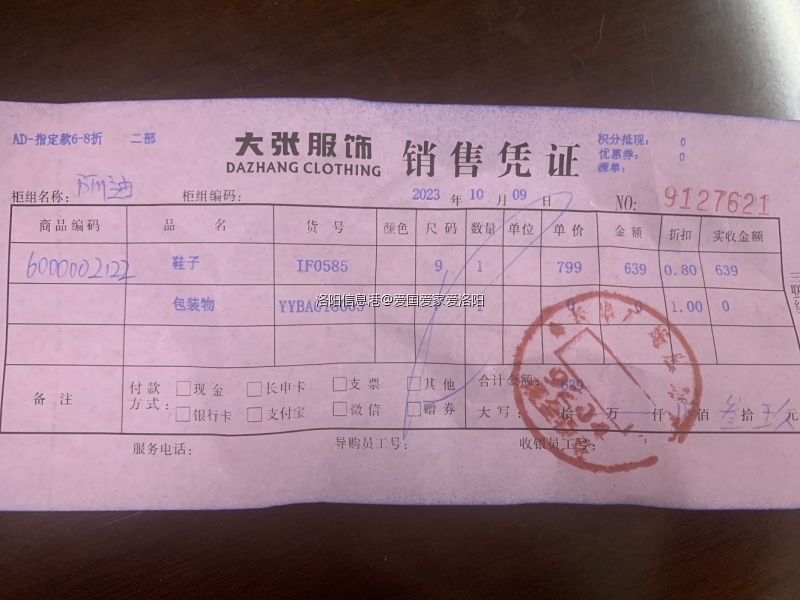 AD-指定款6-8折 二部
大张服饰
DAZHANG CLOTHING
销售凭证
积分抵现: 0
优惠券: 0
源单:
柜组名称:
柜组编码:
2023 年 10 月 09 日
NO: 9127621
商品编码 品名 货号 颜色 尺码 数量 单位 单价 金额 折扣 实收金额
6000002122 鞋子 IF0585 9 1 799 639 0.80 639
包装物 1 0 0 1.00 0
洛阳信息港@爱国爱家爱洛阳
备注
付款方式: 现金 长申卡 支票 其他
银行卡 支付宝 微信 赠券
合计金额: 639
大写: 拾 万 仟 佰 叁拾 元
服务电话: 导购员工号: 收银员工号: